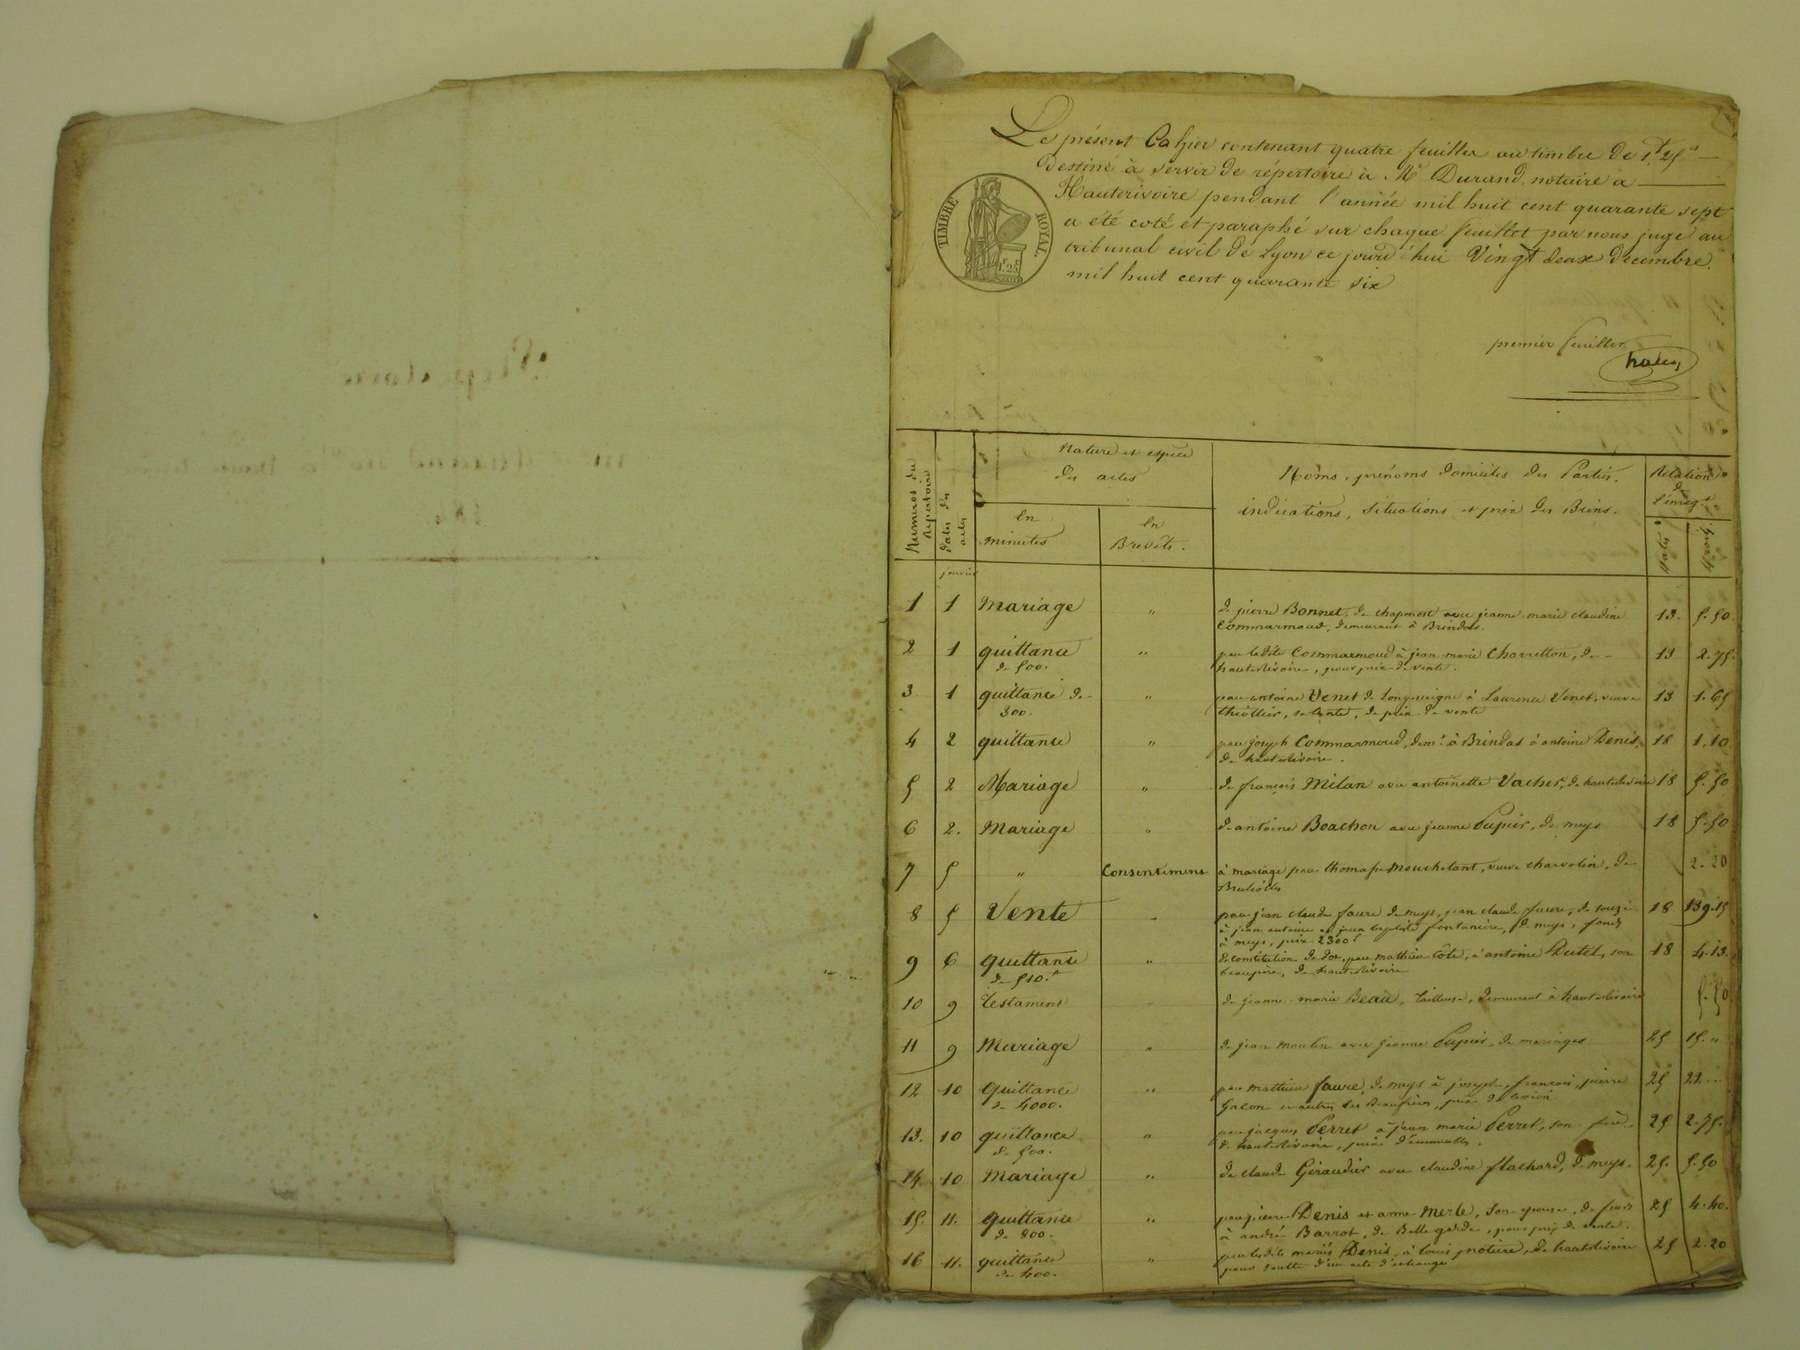 Le présent Cahier contenant quatre feuilles au timbre de 1f 25c
Destiné à servir de répertoire à Me Durand notaire a
Hauterivoire pendant l'année mil huit cent quarante sept
a été coté et paraphé sur chaque feuillet par nous juge au
tribunal civil de Lyon ce jourd'hui Vingt deux decembre
mil huit cent quarante Six
TIMBRE ROYAL
1F.25C
premier feuillet
Numeros du Repertoire
Dates des actes
Nature et espèce des actes
En minutes
En Brevets.
Noms, prénoms Domiciles des Parties.
indications, Situations et prix des Biens.
Relation de l'enregt.
Dates
Droits
janvier
1 1 Mariage " de pierre Bonnet, de chaponost avec jeanne marie claudine 13. 5.50
Commarmond, demeurant à Brindas.
2 1 quittance " par ladite Commarmond à jean marie Charretton, de 13 2.75.
de 500. hauterivoire, pour prix de vente.
3 1 quittance de " par antoine Venet de Longessaigne à Laurence Venet, veuve 13 1.65
300. thiollier, sa tante, de prix de vente
4 2 quittance " par joseph Commarmond, demt à Brindas à antoine Denis, 18 1.10.
de hauterivoire.
5 2 Mariage " de françois Milan avec antoinette Vacher, de hauterivoire 18 5.50
6 2. Mariage " de antoine Boachon avec jeanne Pupier, de meys 18 5.50
7 5 " Consentement à mariage par thomasse Mouchetant, veuve charvolin, de 2.20
Brullioles
8 5 Vente " par jean claude faure de meys, jean claude faure, de souzi 18 139.15
à jean antoine et jean baptiste fontanière, de meys, fonds
à meys, prix 2300f
9 6 Quittance " de constitution de dot, par mathieu Côte, à antoine Dutel, son 18 4.13.
de 510.f beaupère, de hauterivoire
10 9 Testament de jeanne marie Beau, tailleuse, demeurant à hauterivoire 5.50
11 9 Mariage " de jean moulin avec jeanne Pupier, de maringes 25 15. "
12 10 Quittance " par mathieu faure, de meys à joseph, françois, pierre 25 22. "
de 4000. Galon et autres ses beaufrères, prix de cession
13. 10 quittance " par jacques Perret à jean marie Perret, son frère 25 2.75.
de 500. de hauterivoire, prix d'immeubles.
14. 10 Mariage " de claude Giraudier avec claudine flachard, de meys. 25. 5.50
15. 11. quittance " par pierre Denis et anne Merle, son epouse, de 25 4.40.
de 800. à andré Barrot, de Bellegarde, pour prix de vente.
16 11. quittance " par lesdits mariés Denis, à louis notière, de hauterivoire 25 2.20
de 400. pour soulte d'un acte d'echange